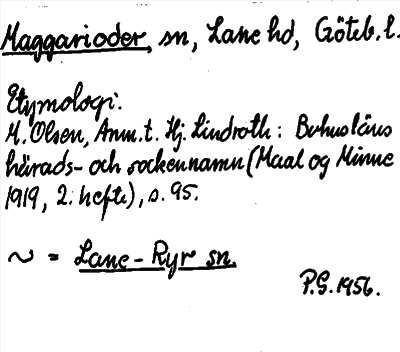 Maggarioder, sn, Lane hd, Göteb. l.
Etymologi:
M. Olsen, Anm. t. Hj. Lindroth: Bohusläns
härads- och sockennamn (Maal og Minne
1919, 2. hefte), s. 95.
~ = Lane-Ryr sn.
P.G. 1956.